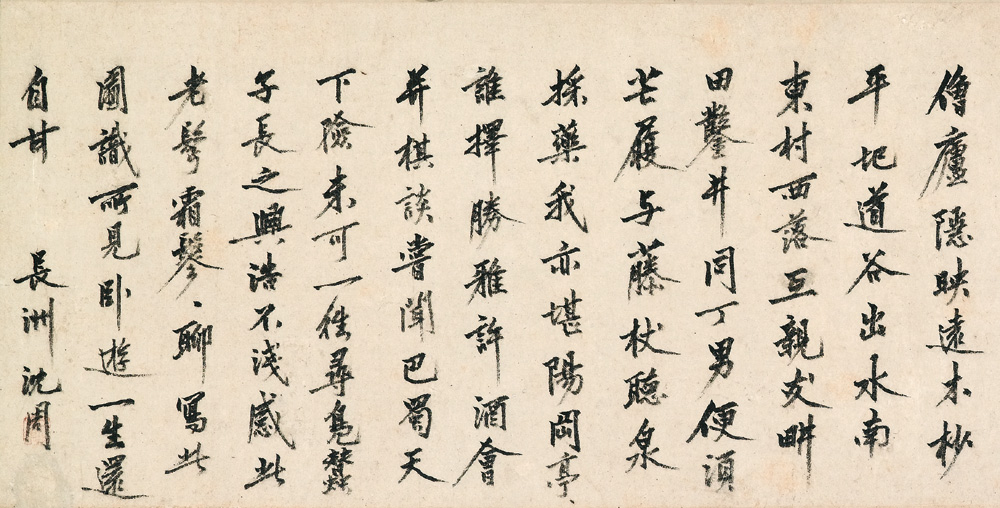 僧廬隱映遠木杪
平地道谷出水南
東村西落互親友畊
田鑿井同丁男便須
芒屨与藤杖聽泉
採藥我亦堪陽岡亭、
誰擇勝雅許酒會
并棋談嘗聞巴蜀天
下險未可一往尋鳧蠶
子長之興浩不淺感此
老髩霜鬖、聊寫此
圖識所見卧遊一生還
自甘 長洲沈周